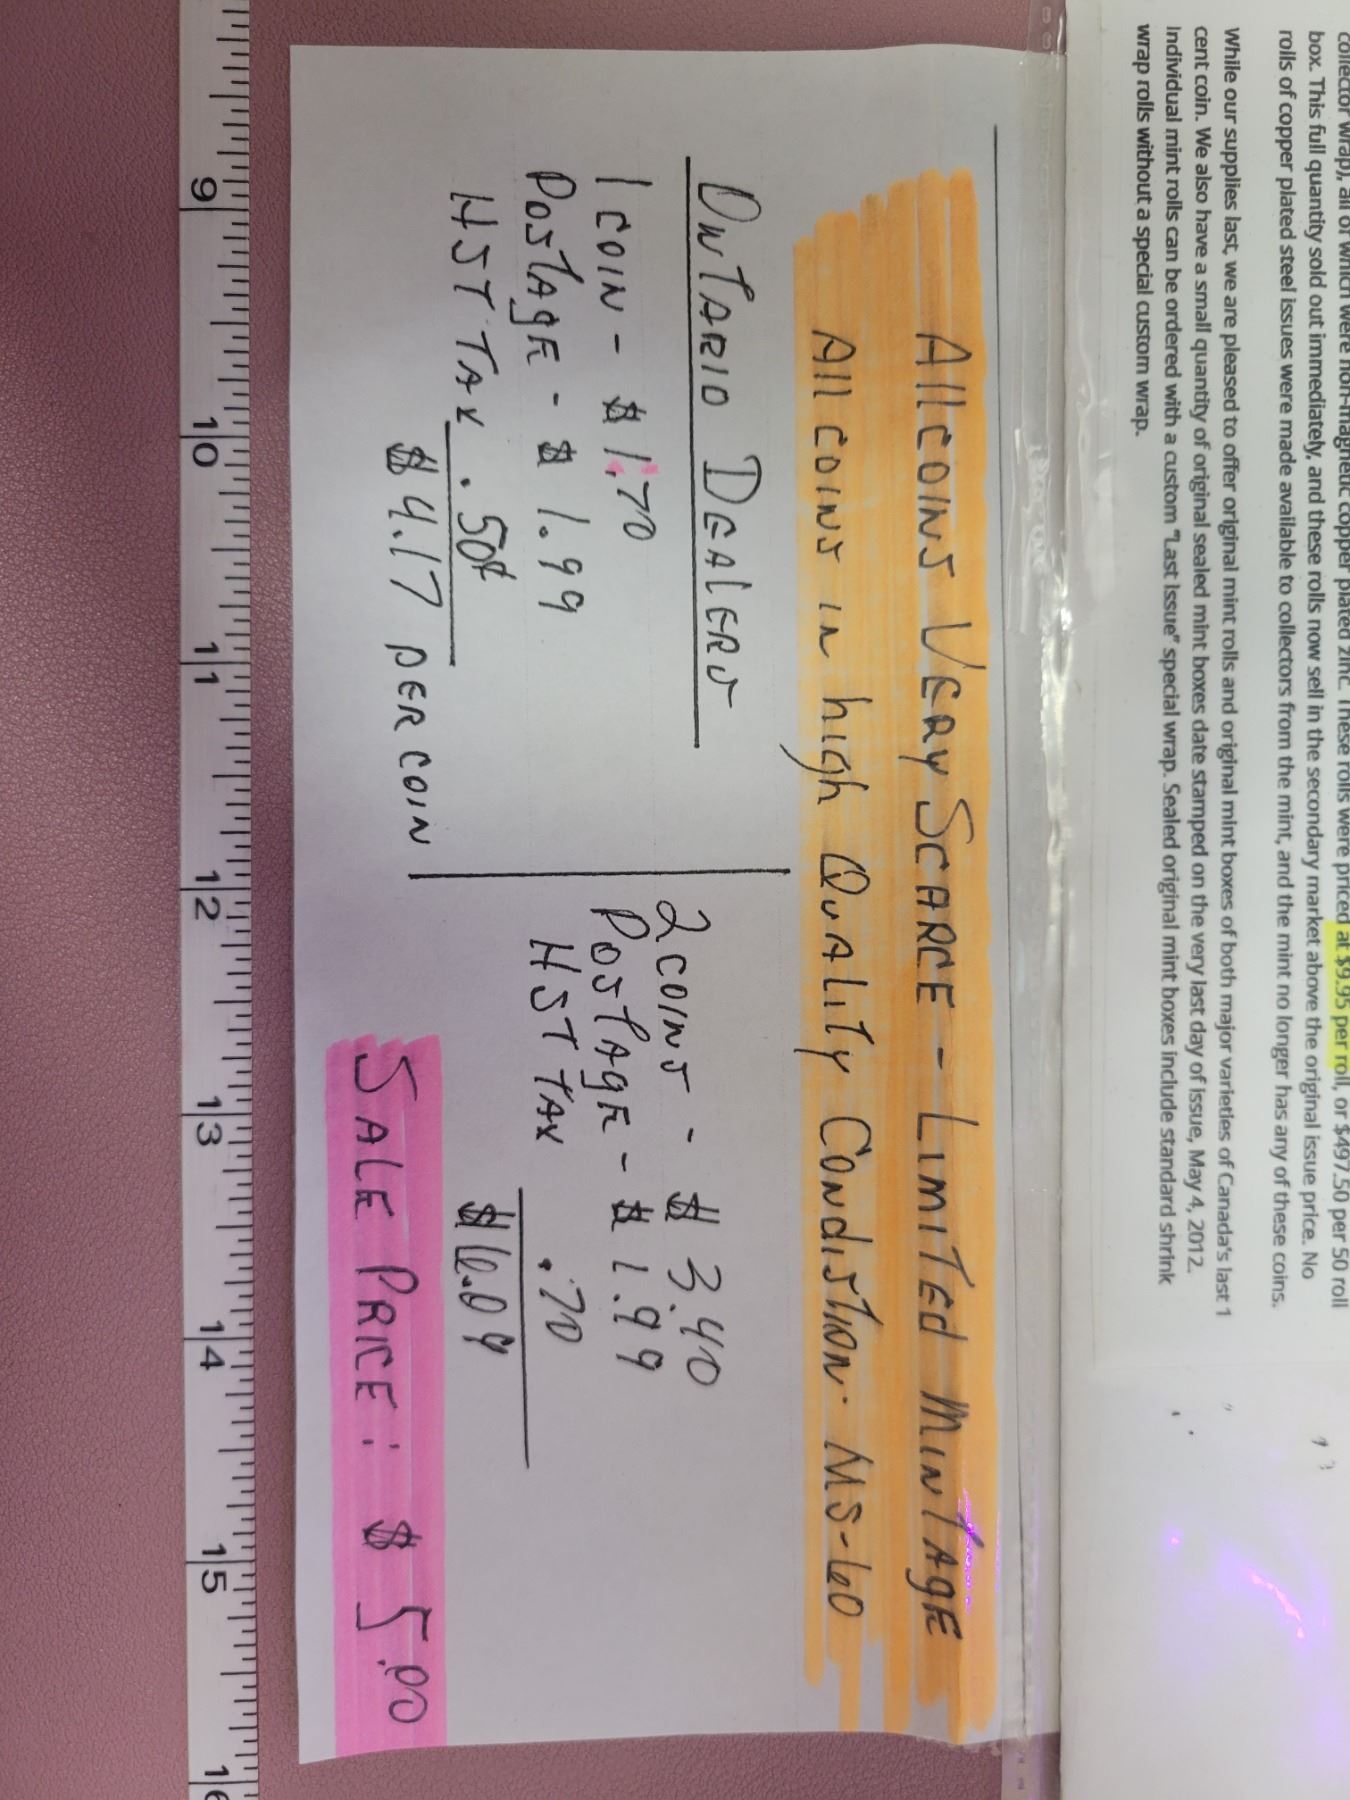 collector wrap), all of which were non-magnetic copper plated zinc. These rolls were priced at $9.95 per roll, or $497.50 per 50 roll
box. This full quantity sold out immediately, and these rolls now sell in the secondary market above the original issue price. No
rolls of copper plated steel issues were made available to collectors from the mint, and the mint no longer has any of these coins.
While our supplies last, we are pleased to offer original mint rolls and original mint boxes of both major varieties of Canada's last 1
cent coin. We also have a small quantity of original sealed mint boxes date stamped on the very last day of issue, May 4, 2012.
Individual mint rolls can be ordered with a custom "Last Issue" special wrap. Sealed original mint boxes include standard shrink
wrap rolls without a special custom wrap.
All coins Very Scarce - Limited Mintage
All coins in high Quality Condistion. MS-60
Ontario Dealers
1 coin - $1.70
Postage - $1.99
HST Tax .50¢
$4.17 per coin
2 coins - $3.40
Postage - $1.99
HST Tax .70
$6.09
Sale Price: $5.00
9 10 11 12 13 14 15 16